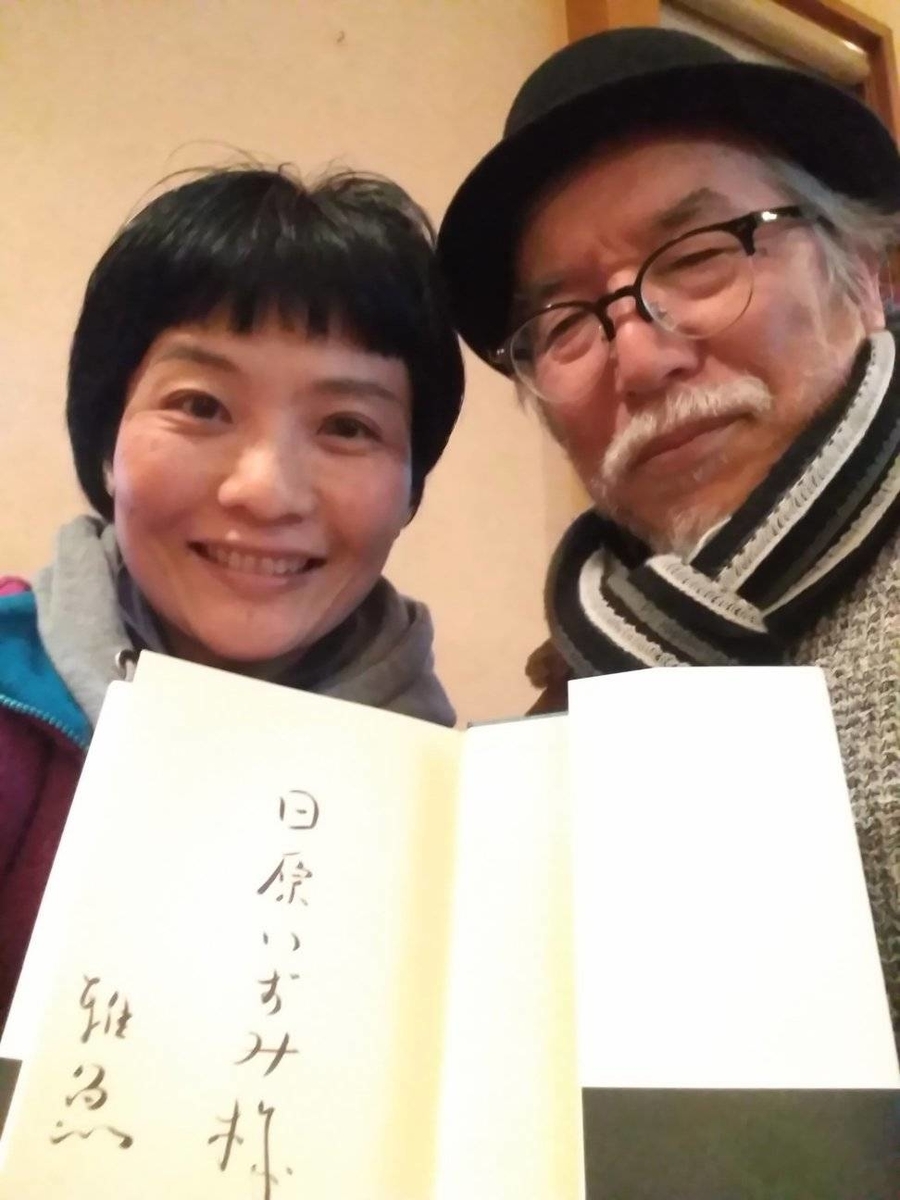 日原いずみ様
雅魚